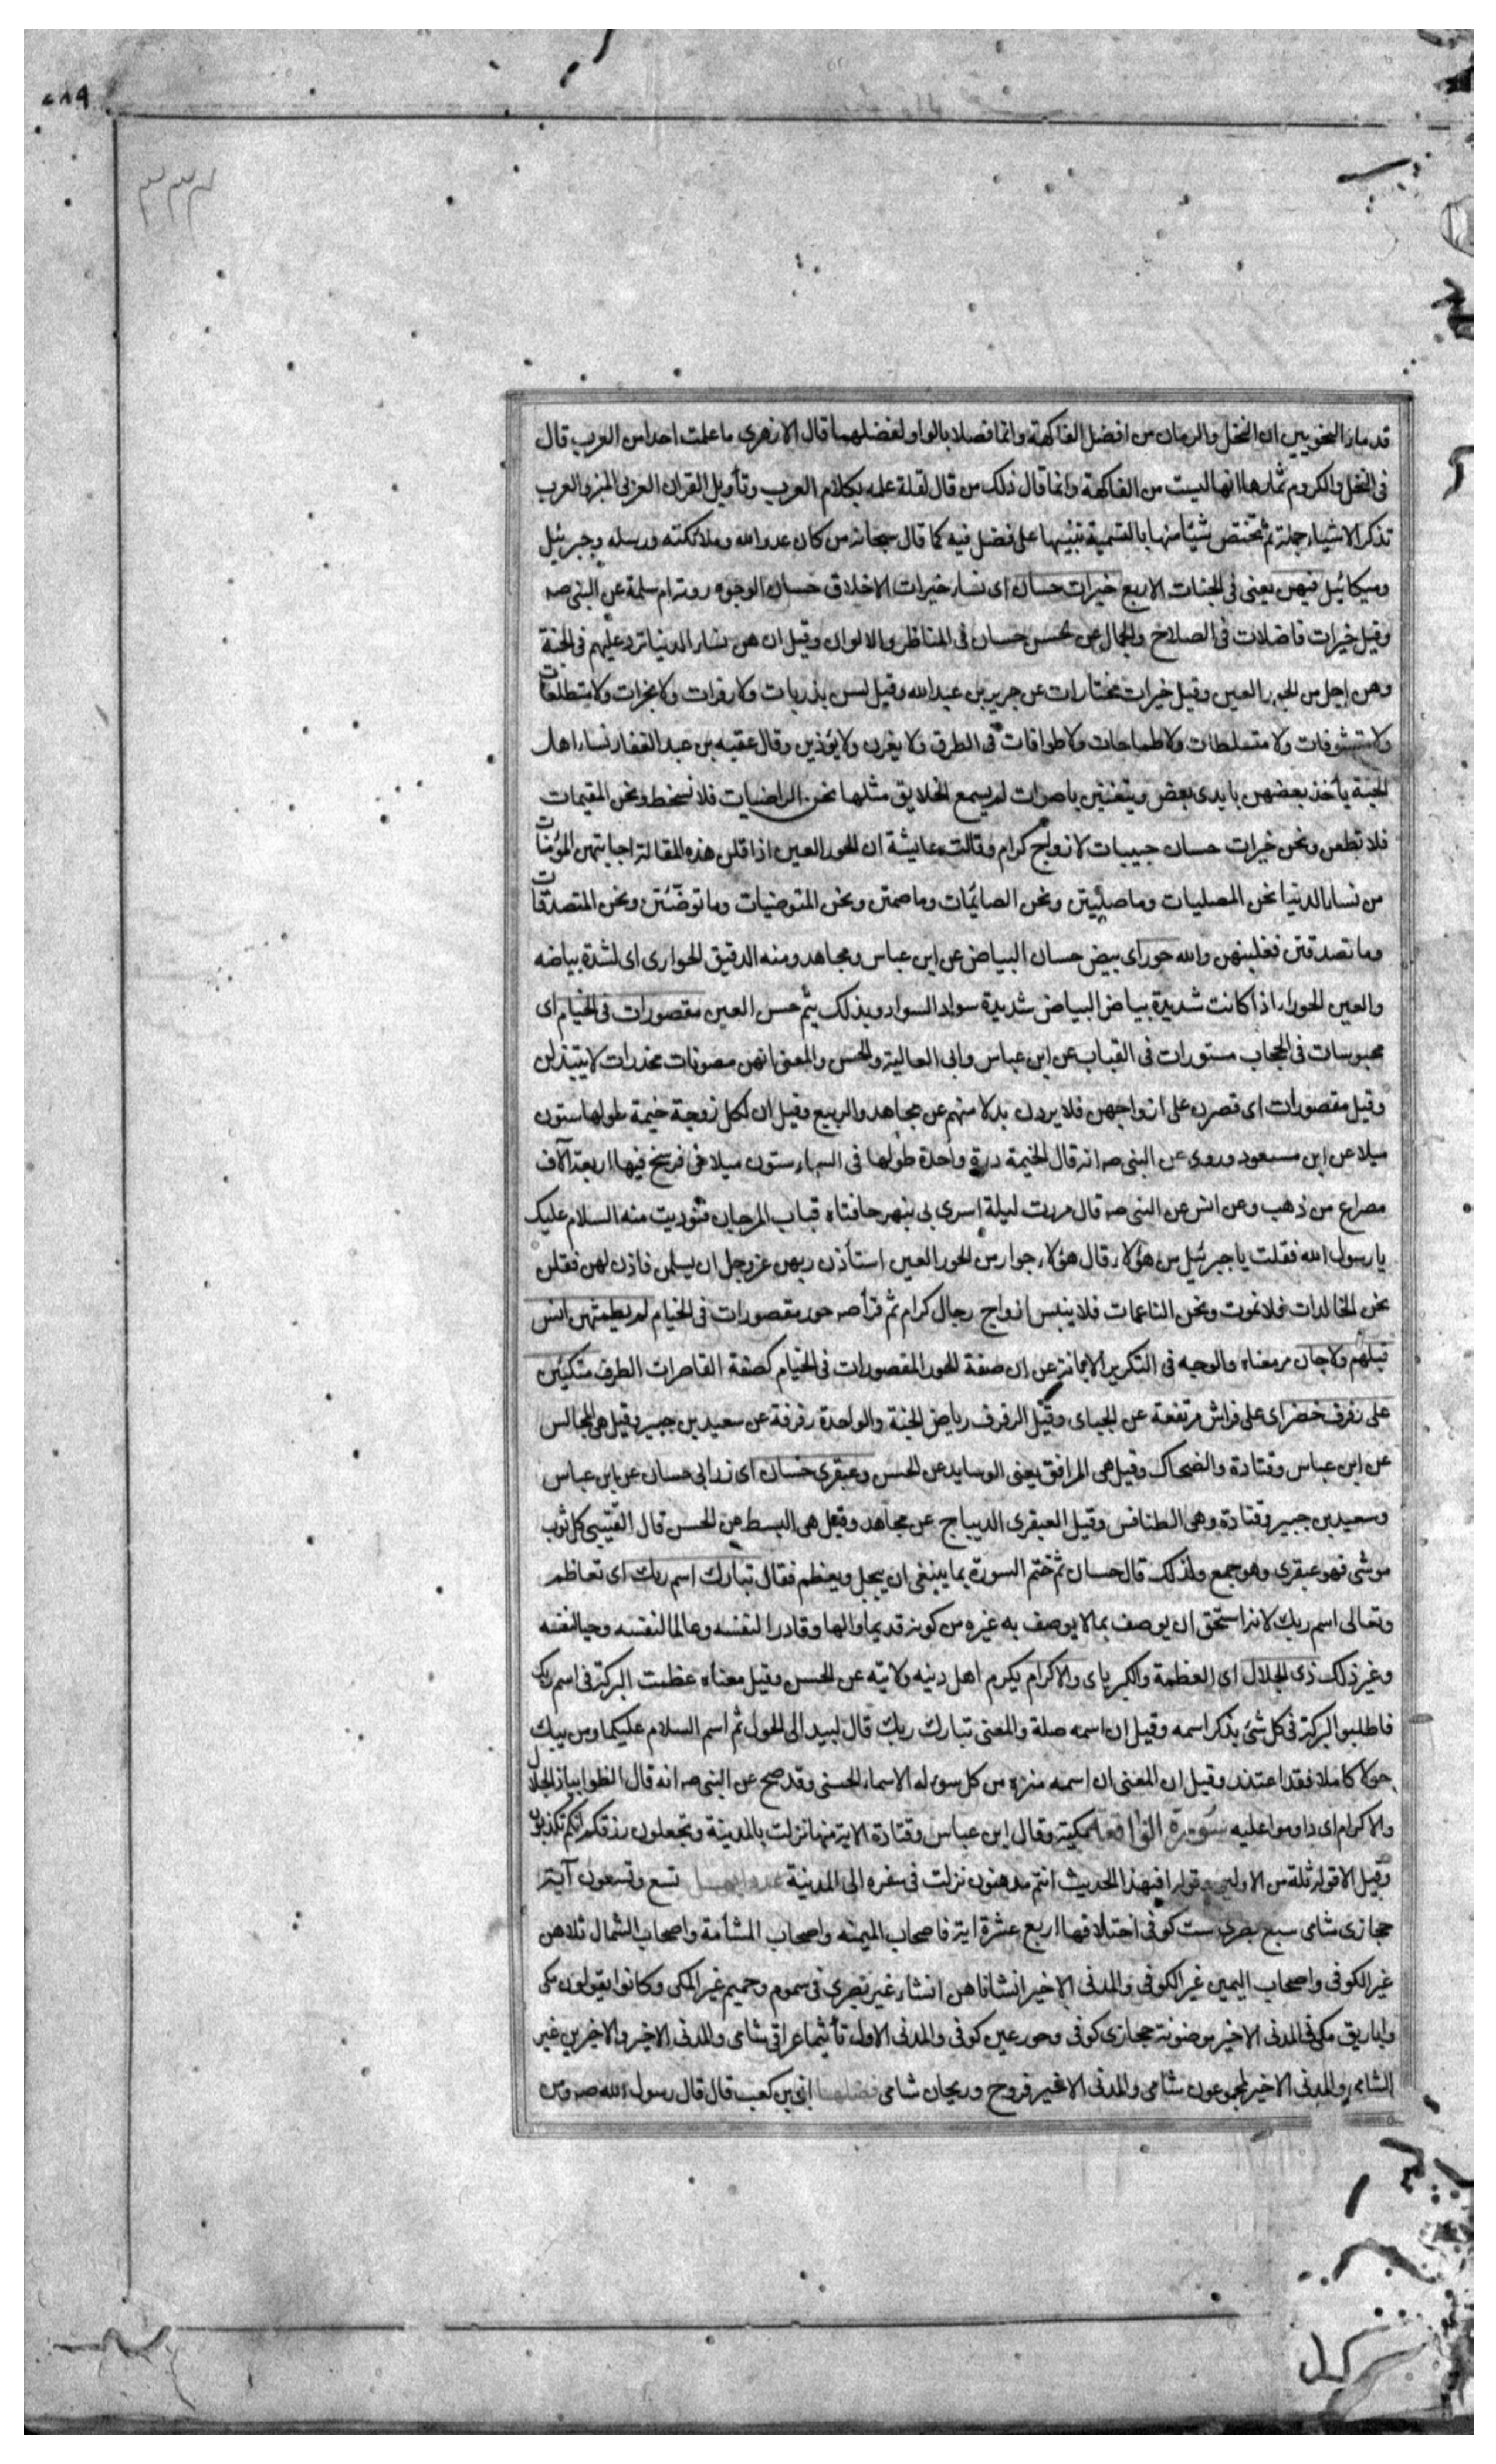 ٢٨٩
٣٣٢
قدماء النحويين ان النخل والرمان من افضل الفاكهة وانما فصلا بالواو لفضلهما قال الازهرى ما علمت احدا من العرب قال
فى النخل والكروم ثمارها انها ليست من الفاكهة وانما قال ذلك من قال لقلة علمه بكلام العرب وتأويل القران العربى المبين والعرب
تذكر الاشياء جملة ثم تختص شيئا منها بالتسمية تنبيها على فضل فيه كما قال سبحانه من كان عدوا لله وملائكته ورسله وجبرئيل
وميكائيل فيهن يعنى فى الجنات الاربع خيرات حسان اى نساء خيرات الاخلاق حسان الوجوه روته ام سلمة عن النبى صه
وقيل خيرات فاضلات فى الصلاح والجمال عن الحسن حسان فى المناظر والالوان وقيل ان هن نساء الدنيا ترد عليهم فى الجنة
وهن اجل من الحور العين وقيل خيرات مختارات عن جرير بن عبد الله وقيل لسن بذربات ولا زفرات ولا بخرات ولا متطلعات
ولا متشوفات ولا متسلطات ولا طماحات ولا طوافات فى الطرق ولا يغرن ولا يؤذين وقال عقبه بن عبد الغفار نساء اهل
الجنة يأخذ بعضهن بايدى بعض ويتغنين باصوات لم يسمع الخلايق مثلها نحن الراضيات فلا نسخط ونحن المقيمات
فلا نظعن ونحن خيرات حسان حبيبات لازواج كرام وقالت عايشة ان الحور العين اذا قلن هذه المقالة اجابتهن المؤمنات
من نساء الدنيا نحن المصليات وما صليتن ونحن الصائمات وما صمتن ونحن المتوضيات وما توضئتن ونحن المتصدقات
وما تصدقتن فغلبنهن والله حور اى بيض حسان البياض عن ابن عباس ومجاهد ومنه الدقيق الحوارى اى لشدة بياضه
والعين الحوراء اذا كانت شديدة بياض البياض شديدة سواد السواد وبذلك يتم حسن العين مقصورات فى الخيام اى
محبوسات فى الحجاب مستورات فى القباب عن ابن عباس وابى العالية والحسن والمعنى انهن مصونات مخدرات لا يبتذلن
وقيل مقصورات اى قصرن على ازواجهن فلا يردن بدلا منهم عن مجاهد والربيع وقيل ان لكل زوجة خيمة طولها ستون
ميلا عن ابن مسعود وروى عن النبى صه انه قال الخيمة درة واحدة طولها فى السماء ستون ميلا فى فرسخ فيها اربعة آلاف
مصراع من ذهب وعن انس عن النبى صه قال مررت ليلة اسرى بى بنهر حافتاه قباب المرجان فنوديت منه السلام عليك
يا رسول الله فقلت يا جبرئيل من هؤلاء قال هؤلاء جوار من الحور العين استأذن ربهن عز وجل ان يسلمن فاذن لهن فقلن
نحن الخالدات فلا نموت ونحن الناعمات فلا ينبس ازواج رجال كرام ثم قرأ صه حور مقصورات فى الخيام لم يطمثهن انس
قبلهم ولا جان مر معناه والوجه فى التكرير الابانة عن ان صفة الحور المقصورات فى الخيام كصفة القاصرات الطرف متكئين
على رفرف خضر اى على فراش مرتفعة عن الجبائى وقيل الرفرف رياض الجنة والواحدة رفرفة عن سعيد بن جبير وقيل هى المجالس
عن ابن عباس وقتادة والضحاك وقيل هى المرافق يعنى الوسايد عن الحسن وعبقرى حسان اى زرابى حسان عن ابن عباس
وسعيد بن جبير وقتادة وهى الطنافس وقيل العبقرى الديباج عن مجاهد وقيل هى البسط عن الحسن قال القتيبى كل ثوب
موشى فهو عبقرى وهو جمع ولذلك قال حسان ثم ختم السورة بما ينبغى ان يبجل ويعظم فقال تبارك اسم ربك اى تعاظم
وتعالى اسم ربك لانه استحق ان يوصف بما لا يوصف به غيره من كونه قديما والها وقادرا لنفسه وعالما لنفسه وحيا لنفسه
وغير ذلك ذى الجلال اى العظمة والكبرياى والاكرام يكرم اهل دينه ولايته عن الحسن وقيل معناه عظمت البركة فى اسم ربك
فاطلبوا البركة فى كل شئ بذكر اسمه وقيل ان اسمه صلة والمعنى تبارك ربك قال لبيد الى الحول ثم اسم السلام عليكما ومن يبك
حولا كاملا فقد اعتذر وقيل ان المعنى ان اسمه منزه من كل سوء له الاسماء الحسنى وقد صح عن النبى صه انه قال الظوا بياذ الجلال
والاكرام اى داوموا عليه سورة الواقعة مكية وقال ابن عباس وقتادة الا اية منها نزلت بالمدينة وتجعلون رزقكم انكم تكذبون
وقيل الا قوله ثلة من الاولين وقوله افبهذا الحديث انتم مدهنون نزلت فى سفره الى المدينة عدد ايها تسع وتسعون آية
حجازى شامى سبع بصرى ست كوفى اختلافها اربع عشرة اية فاصحاب الميمنه واصحاب المشأمة واصحاب الشمال ثلاهن
غير الكوفى واصحاب اليمين غير الكوفى والمدنى الاخير انشاناهن انشاء غير بصرى فى سموم وحميم غير المكى وكانوا يقولون مكى
واباريق مكى والمدنى الاخير موضونة حجازى كوفى وحور عين كوفى والمدنى الاول تأثيما عراقى شامى والمدنى الاخير والاخرين غير
الشامى والمدنى الاخير لمجموعون شامى والمدنى الاخير فروح وريحان شامى فضلها ابى بن كعب قال قال رسول الله صه ومن